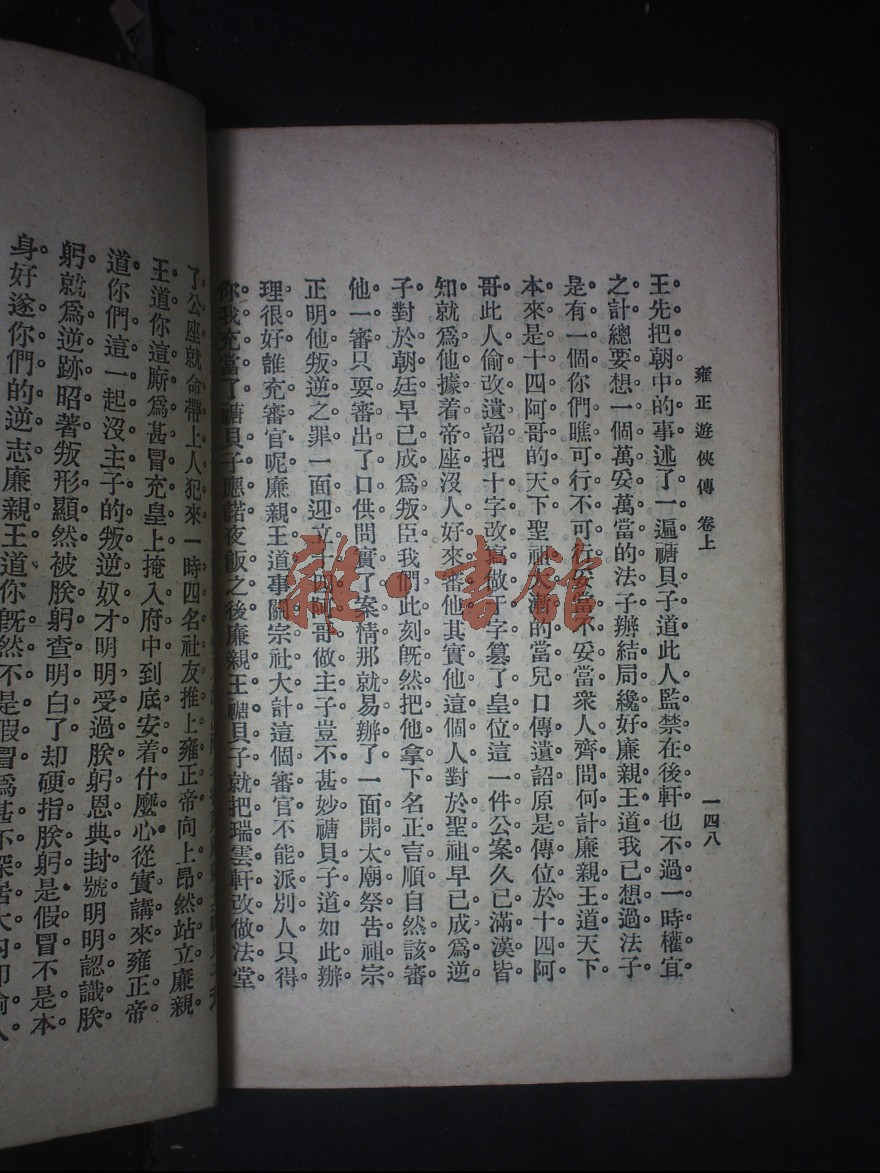 雍正遊俠傳 卷上
一四八
王先把朝中的事述了一遍禟貝子道此人監禁在後軒也不過一時權宜
之計總要想一個萬妥萬當的法子辦結局纔好廉親王道我已想過法子
是有一個你們瞧可行不可行妥當不妥當衆人齊問何計廉親王道天下
本來是十四阿哥的天下聖祖大漸的當兒口傳遺詔原是傳位於十四阿
哥此人偷改遺詔把十字改寫做于字篡了皇位這一件公案久已滿漢皆
知就爲他據着帝座沒人好來審他其實他這個人對於聖祖早已成爲逆
子對於朝廷早已成爲叛臣我們此刻旣然把他拿下名正言順自然該審
他一審只要審出了口供問實了案情那就易辦了一面開太廟祭告祖宗
正明他叛逆之罪一面迎立十四阿哥做主子豈不甚妙禟貝子道如此辦
理很好誰充審官呢廉親王道事關宗社大計這個審官不能派別人只得
你我充當了禟貝子應諾夜飯之後廉親王禟貝子就把瑞雲軒改做法堂
了公座就命帶上人犯來一時四名社友推上雍正帝向上昂然站立廉親
王道你這厮爲甚冒充皇上掩入府中到底安着什麼心從實講來雍正帝
道你們這一起沒主子的叛逆奴才明明受過朕躬恩典封號明明認識朕
躬就爲逆跡昭著叛形顯然被朕躬查明白了却硬指朕躬是假冒不是本
身好遂你們的逆志廉親王道你旣然不是假冒爲甚不深居大內
雜·書館